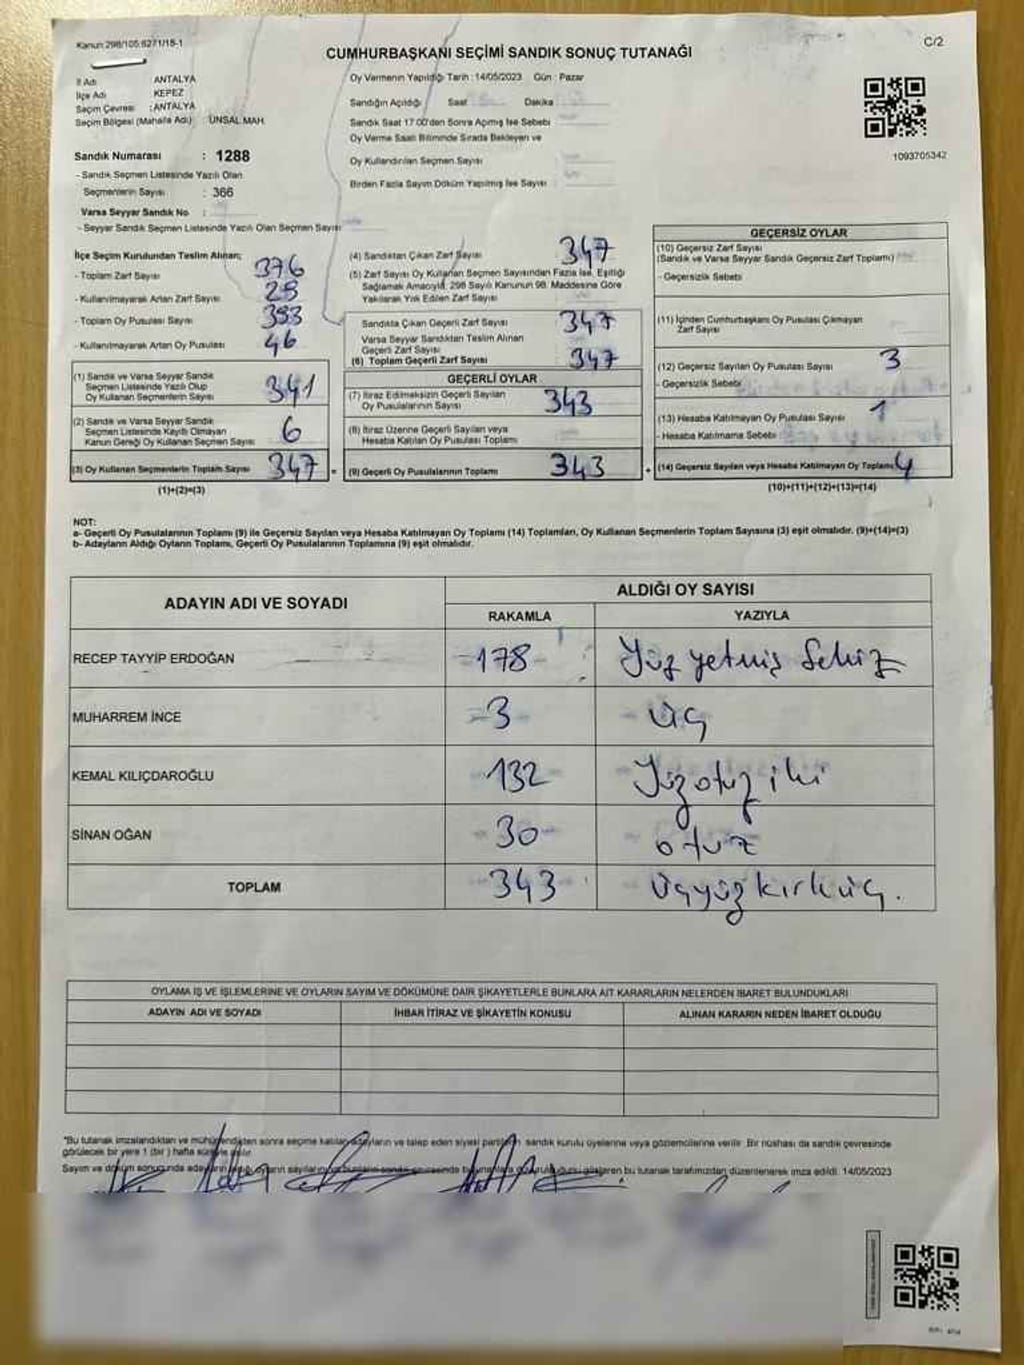 Kanun:298/105;6271/18-1
CUMHURBAŞKANI SEÇİMİ SANDIK SONUÇ TUTANAĞI
C/2
İl Adı ANTALYA
İlçe Adı KEPEZ
Seçim Çevresi : ANTALYA
Seçim Bölgesi (Mahalle Adı) ÜNSAL MAH.
Sandık Numarası : 1288
- Sandık Seçmen Listesinde Yazılı Olan
Seçmenlerin Sayısı : 366
Varsa Seyyar Sandık No :
- Seyyar Sandık Seçmen Listesinde Yazılı Olan Seçmen Sayısı
Oy Vermenin Yapıldığı Tarih : 14/05/2023 Gün : Pazar
Sandığın Açıldığı Saat Dakika
Sandık Saat 17:00'den Sonra Açılmış İse Sebebi
Oy Verme Saati Bitiminde Sırada Bekleyen ve
Oy Kullandırılan Seçmen Sayısı
Birden Fazla Sayım Döküm Yapılmış İse Sayısı
1093705342
İlçe Seçim Kurulundan Teslim Alınan;
- Toplam Zarf Sayısı 376
- Kullanılmayarak Artan Zarf Sayısı 29
- Toplam Oy Pusulası Sayısı 393
- Kullanılmayarak Artan Oy Pusulası 46
(1) Sandık ve Varsa Seyyar Sandık
Seçmen Listesinde Yazılı Olup
Oy Kullanan Seçmenlerin Sayısı 341
(2) Sandık ve Varsa Seyyar Sandık
Seçmen Listesinde Kayıtlı Olmayan
Kanun Gereği Oy Kullanan Seçmen Sayısı 6
(3) Oy Kullanan Seçmenlerin Toplam Sayısı 347 =
(1)+(2)=(3)
(4) Sandıktan Çıkan Zarf Sayısı 347
(5) Zarf Sayısı Oy Kullanan Seçmen Sayısından Fazla İse, Eşitliği
Sağlamak Amacıyla, 298 Sayılı Kanunun 98. Maddesine Göre
Yakılarak Yok Edilen Zarf Sayısı
Sandıkta Çıkan Geçerli Zarf Sayısı 347
Varsa Seyyar Sandıktan Teslim Alınan
Geçerli Zarf Sayısı
(6) Toplam Geçerli Zarf Sayısı 347
GEÇERLİ OYLAR
(7) İtiraz Edilmeksizin Geçerli Sayılan
Oy Pusulalarının Sayısı 343
(8) İtiraz Üzerine Geçerli Sayılan veya
Hesaba Katılan Oy Pusulası Toplamı
(9) Geçerli Oy Pusulalarının Toplamı 343 +
GEÇERSİZ OYLAR
(10) Geçersiz Zarf Sayısı
(Sandık ve Varsa Seyyar Sandık Geçersiz Zarf Toplamı)
- Geçersizlik Sebebi
(11) İçinden Cumhurbaşkanı Oy Pusulası Çıkmayan
Zarf Sayısı
(12) Geçersiz Sayılan Oy Pusulası Sayısı 3
- Geçersizlik Sebebi
(13) Hesaba Katılmayan Oy Pusulası Sayısı 1
- Hesaba Katılmama Sebebi
(14) Geçersiz Sayılan veya Hesaba Katılmayan Oy Toplamı 4
(10)+(11)+(12)+(13)=(14)
NOT:
a- Geçerli Oy Pusulalarının Toplamı (9) ile Geçersiz Sayılan veya Hesaba Katılmayan Oy Toplamı (14) Toplamları, Oy Kullanan Seçmenlerin Toplam Sayısına (3) eşit olmalıdır. (9)+(14)=(3)
b- Adayların Aldığı Oyların Toplamı, Geçerli Oy Pusulalarının Toplamına (9) eşit olmalıdır.
ADAYIN ADI VE SOYADI
ALDIĞI OY SAYISI
RAKAMLA YAZIYLA
RECEP TAYYİP ERDOĞAN 178 Yüz yetmiş Sekiz
MUHARREM İNCE 3 üç
KEMAL KILIÇDAROĞLU 132 Yüz otuz iki
SİNAN OĞAN 30 otuz
TOPLAM 343 üçyüz kırküç.
OYLAMA İŞ VE İŞLEMLERİNE VE OYLARIN SAYIM VE DÖKÜMÜNE DAİR ŞİKAYETLERLE BUNLARA AİT KARARLARIN NELERDEN İBARET BULUNDUKLARI
ADAYIN ADI VE SOYADI İHBAR İTİRAZ VE ŞİKAYETİN KONUSU ALINAN KARARIN NEDEN İBARET OLDUĞU
*Bu tutanak imzalandıktan ve mühürlendikten sonra seçime katılan adayların ve talep eden siyasi partilerin sandık kurulu üyelerine veya gözlemcilerine verilir. Bir nüshası da sandık çevresinde
görülecek bir yere 1 (bir) hafta süreyle asılır.
Sayım ve döküm sonucunda adayların aldığı oyların sayılarını ve bunların sandık çevresinde duyurulduğunu gösteren bu tutanak tarafımızdan düzenlenerek imza edildi. 14/05/2023